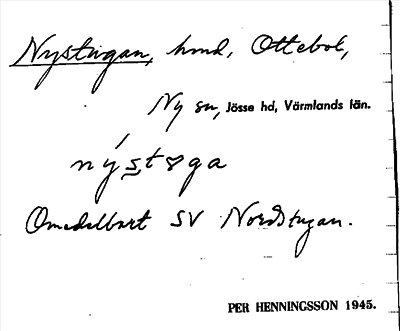 Nystugan, hmd, Ottebol,
Ny sn, Jösse hd, Värmlands län.
nýstøga
Omedelbart SV Nordstugan.
PER HENNINGSSON 1945.